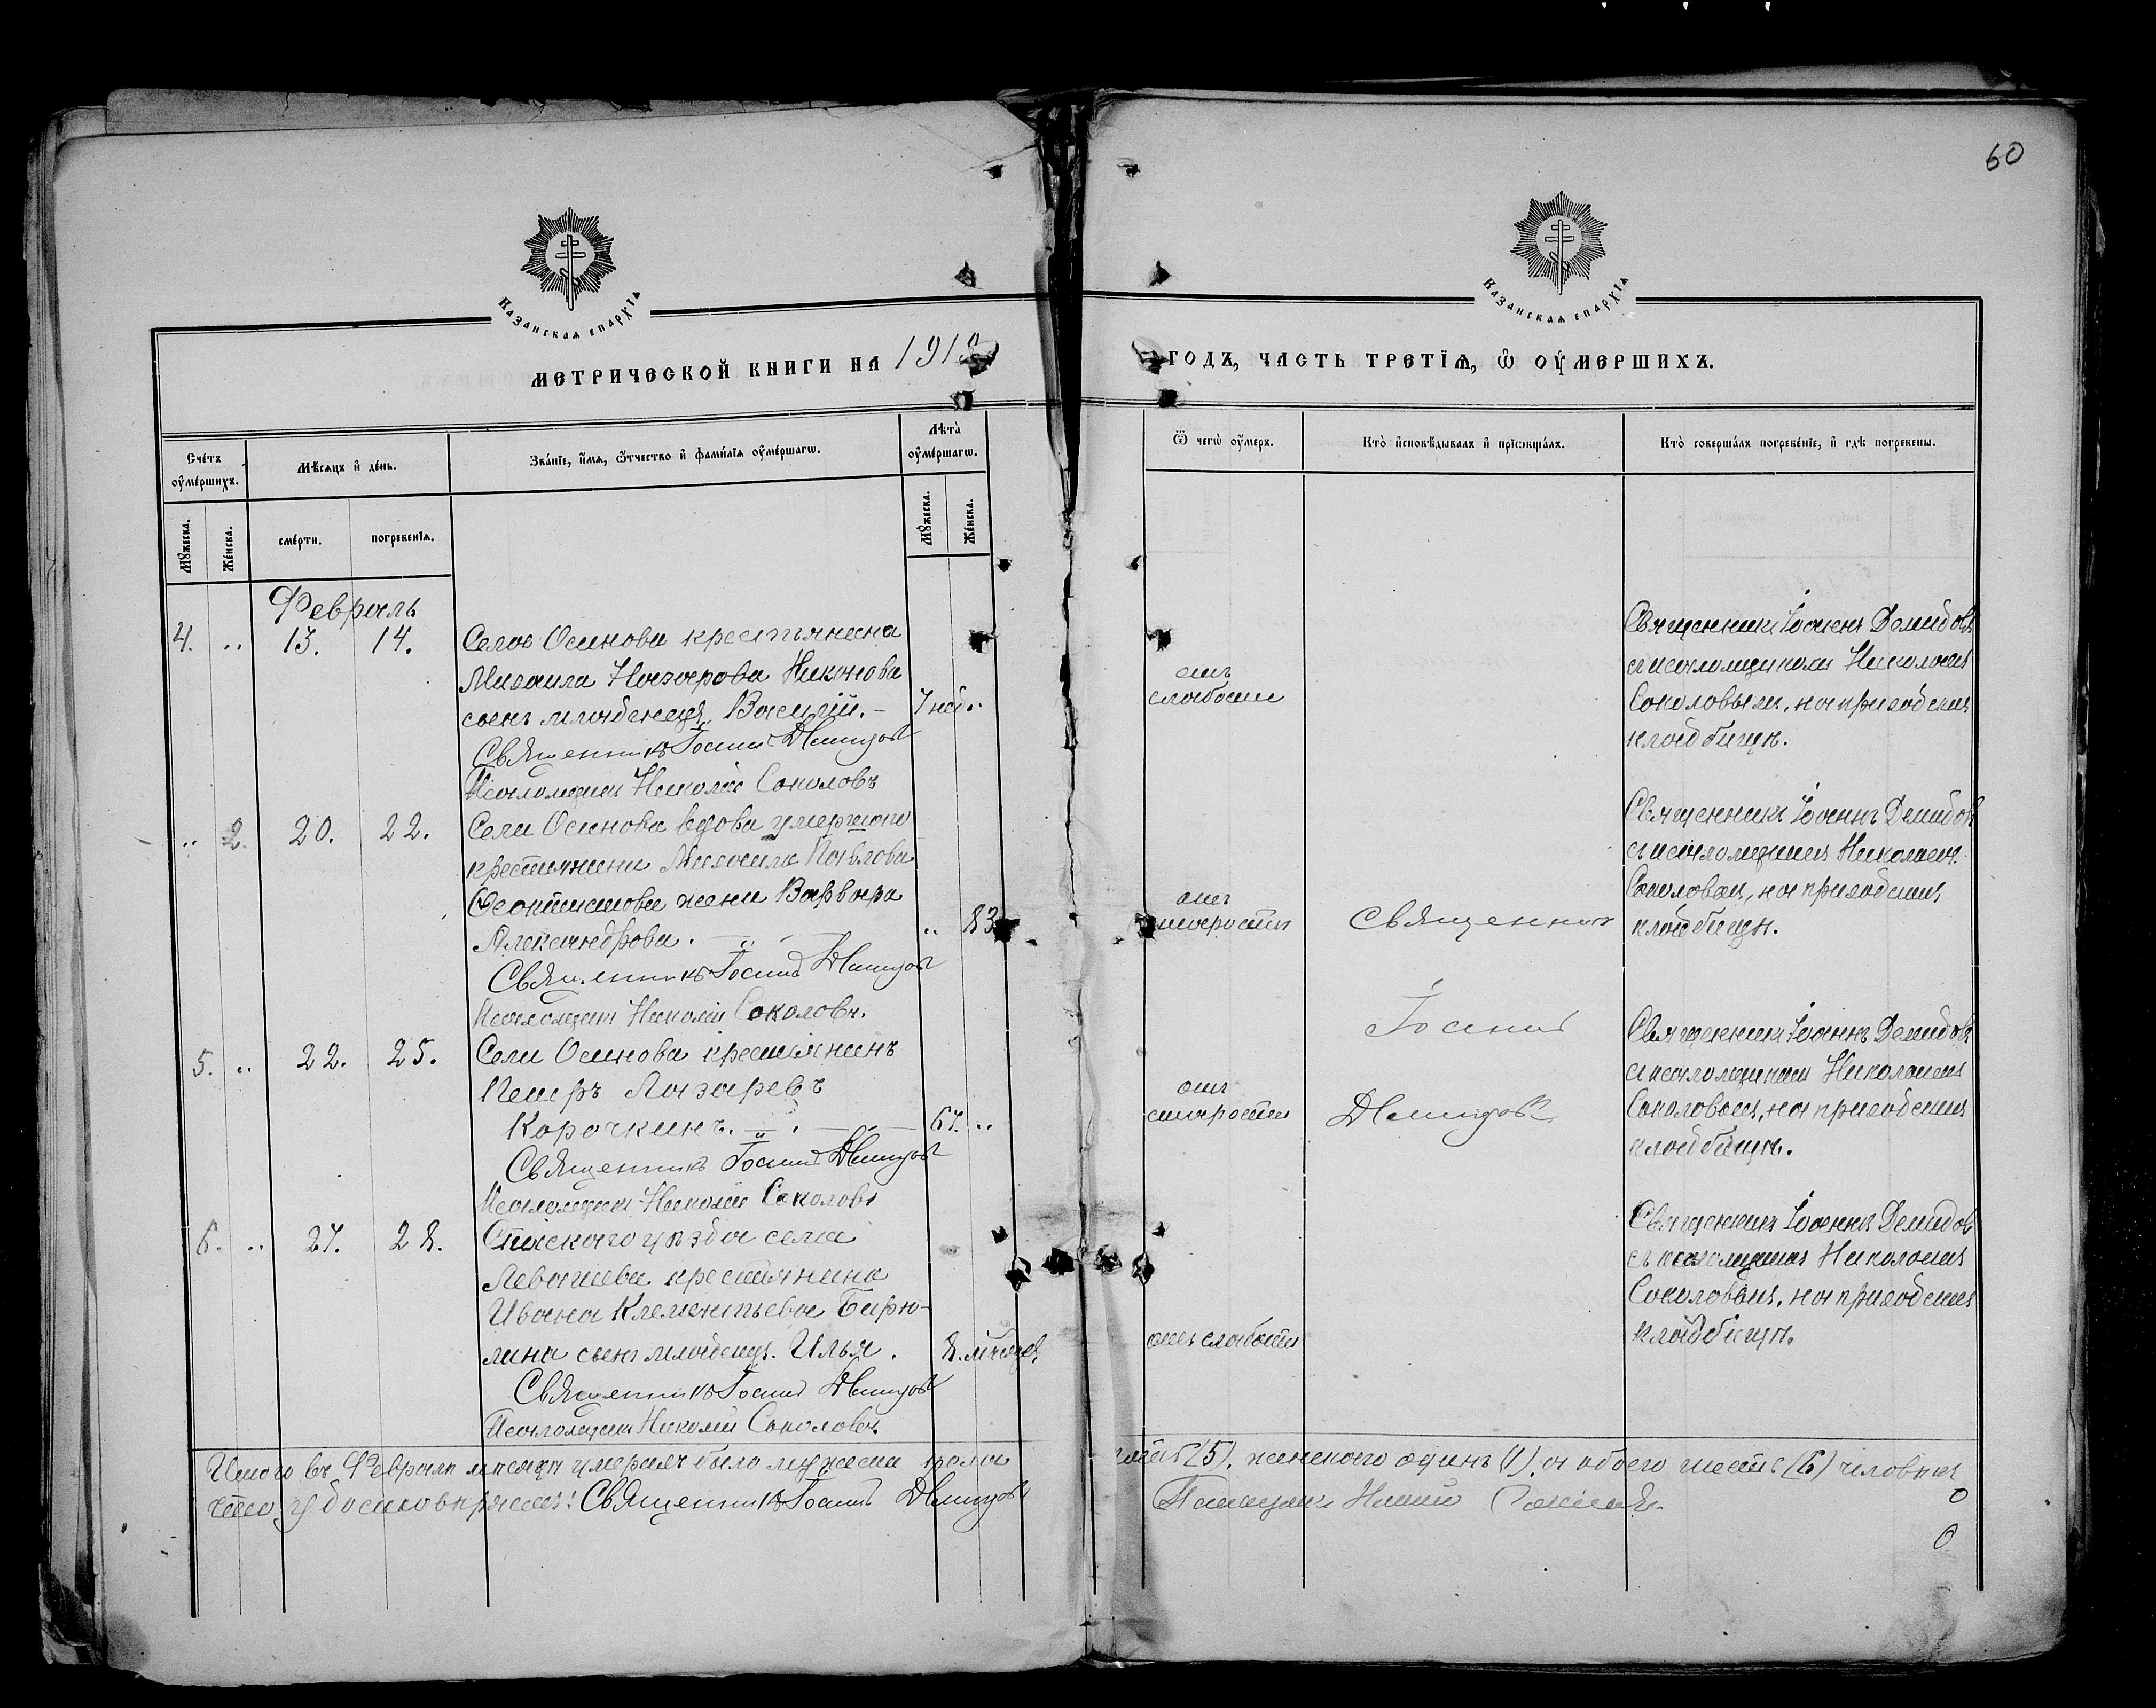 60
Казанская епархїа
Казанская епархїа
метрической книги на 191
годъ, часть третїѧ, ѡ оумершихъ.
Счетъ оумершихъ.
Мѣсяцъ и день.
Званїе, имя, ѿчество и фамилїя оумершагѡ.
Лѣта оумершагѡ.
Ѿ чегѡ оумеръ.
Кто исповѣдывалъ и прїѡбщалъ.
Кто совершалъ погребенїе, и гдѣ погребены.
Мꙋжеска.
Женска.
смерти.
погребенїя.
Мꙋжеска.
Женска.
Февраль
4. .. 13. 14.
Села Осинова крестьянина
Михаила Никонова
сынъ младенецъ Василій. –
7 нед. ..
Священникъ Іоаннъ Демидовъ
Псаломщикъ Николай Соколовъ
отъ
слабости
Священникъ Іоаннъ Демидовъ
съ псаломщикомъ Николаемъ
Соколовымъ, на приходскомъ
кладбищѣ.
.. 2. 20. 22.
Села Осинова вдова умершаго
крестьянина Михаила Павлова
жена Варвара
Александрова.
.. 83
Священникъ Іоаннъ Демидовъ
Псаломщикъ Николай Соколовъ.
отъ
старости
Священникъ
Іоаннъ
Демидовъ
Священникъ Іоаннъ Демидовъ
съ псаломщикомъ Николаемъ
Соколовымъ, на приходскомъ
кладбищѣ.
5. .. 22. 25.
Села Осинова крестьянинъ
Петръ Лазаревъ
Корочкинъ.
67. ..
Священникъ Іоаннъ Демидовъ
Псаломщикъ Николай Соколовъ
отъ
старости
Священникъ Іоаннъ Демидовъ
съ псаломщикомъ Николаемъ
Соколовымъ, на приходскомъ
кладбищѣ.
6. .. 27. 28.
Спасскаго уѣзда села
Левашева крестьянина
Ивана Клементьева Бирю-
лина сынъ младенецъ Илья.
8.
Священникъ Іоаннъ Демидовъ
Псаломщикъ Николай Соколовъ.
отъ слабости
Священникъ Іоаннъ Демидовъ
съ псаломщикомъ Николаемъ
Соколовымъ, на приходскомъ
кладбищѣ.
Итого въ Февралѣ мѣсяцѣ умершихъ было мужеска пола
(5), женскаго одинъ (1), а обоего шесть (6) человѣкъ
что удостовѣряемъ: Священникъ Іоаннъ Демидовъ
Псаломщикъ Николай Соколовъ.